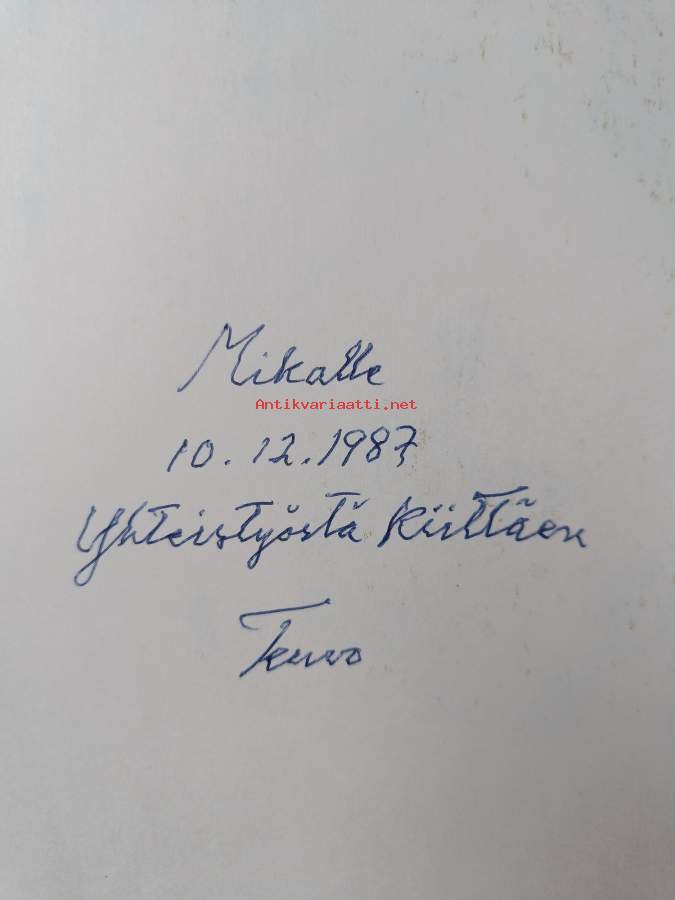 Mikalle
Antikvariaatti.net
10.12.1987
Yhteistyöstä kiittäen
Teuvo